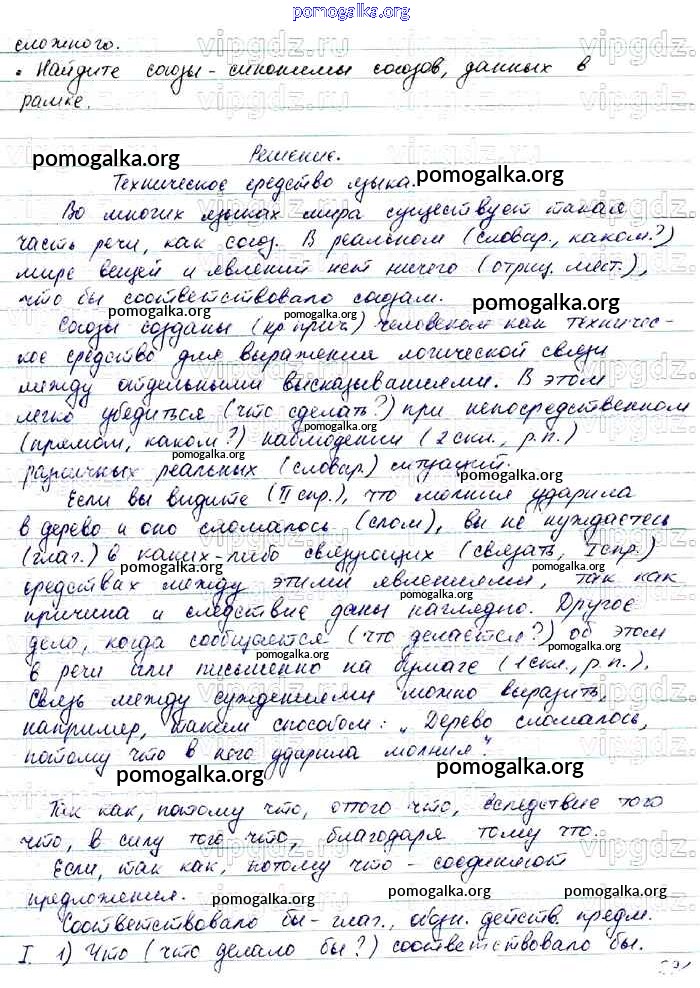 pomogalka.org
сложного.
• Найдите союзы-синонимы союзов, данных в
рамке.
Решение.
Техническое средство языка.
Во многих языках мира существует такая
часть речи, как союз. В реальном (словар., каком?)
мире вещей и явлений нет ничего (отриц. мест.),
что бы соответствовало союзам.
Союзы созданы (кр. прич.) человеком как техничес-
кое средство для выражения логической связи
между отдельными высказываниями. В этом
легко убедиться (что сделать?) при непосредственном
(прямом, каком?) наблюдении (2 скл., р.п.)
различных реальных (словар.) ситуаций.
Если вы видите (II спр.), что молния ударила
в дерево и оно сломалось (слом), вы не нуждаетесь
(глаг.) в каких-либо связующих (связать, I спр.)
средствах между этими явлениями, так как
причина и следствие даны наглядно. Другое
дело, когда сообщается (что делается?) об этом
в речи или письменно на бумаге (1 скл., р.п.).
Связь между суждениями можно выразить,
например, таким способом: „Дерево сломалось,
потому что в него ударила молния".
Так как, потому что, оттого что, вследствие того
что, в силу того что, благодаря тому что.
Если, так как, потому что - соединяют
предложения.
Соответствовало бы - глаг., обозн. действ. предм.
I. 1) Что (что делало бы?) соответствовало бы.